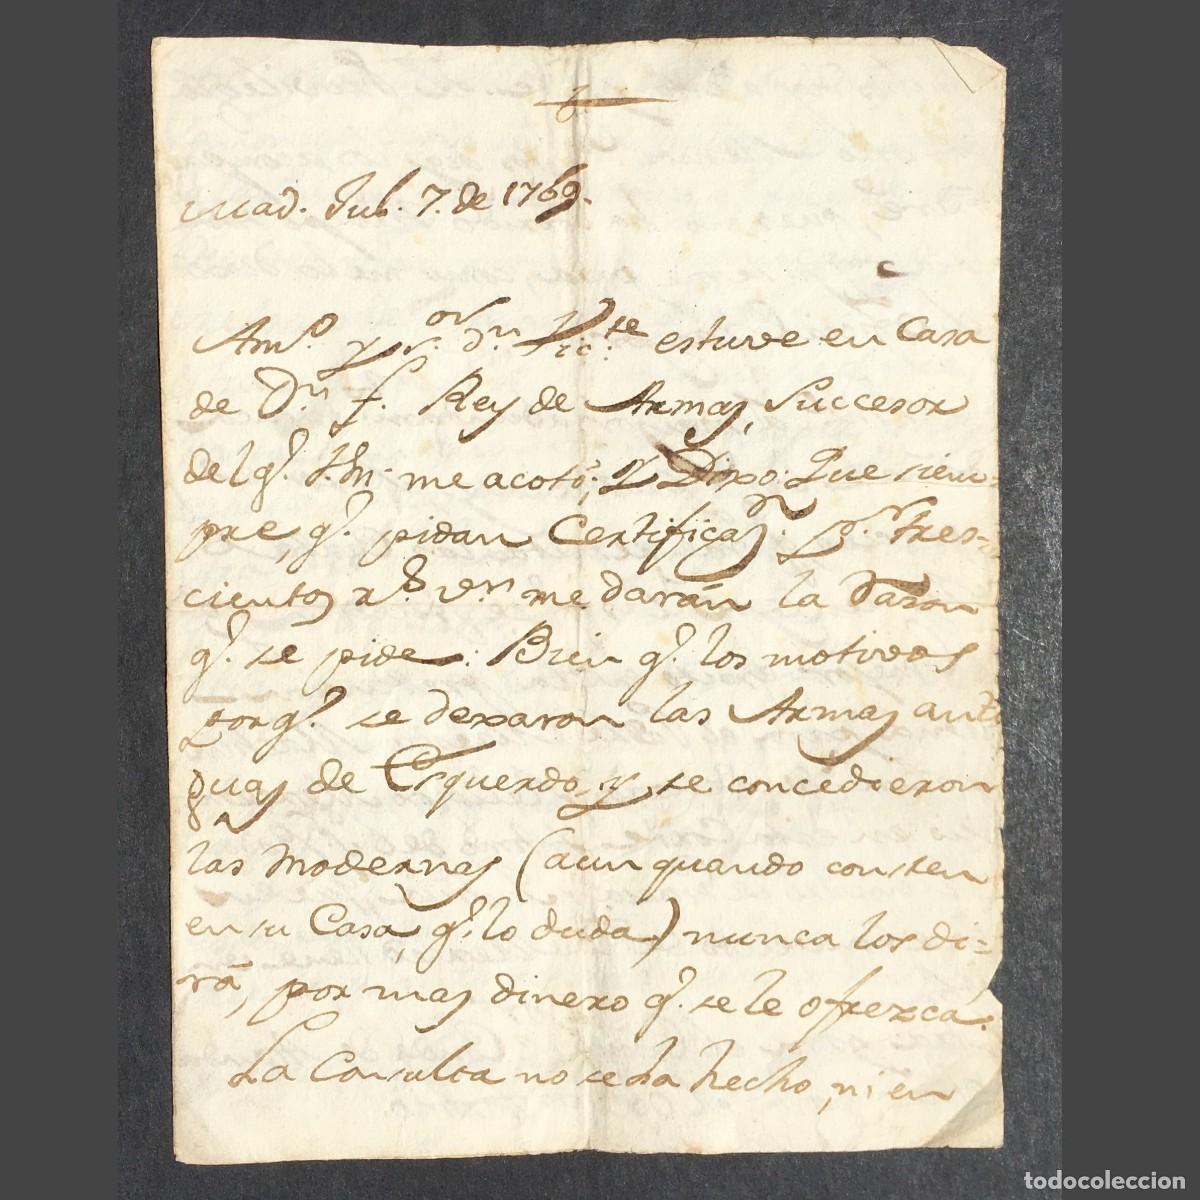 Mad. Jul. 7. de 1769.
Am.º y s.ºr d.n Vic.te estuve en Casa
de D.n f. Rey de Armas, Succesor
del q.e me acotó; y Dixo: Que siem-
pre, q.e pidan Certificaz.n p.r tres-
cientos r.s v.n me darán la
q.e se pide: Bien q.e los motivos
porq.e se dexaron las Armas anti
guas de Esquerdo, y se concedieron
las Modernas (aun quando consten
en su Casa, q.e lo duda) nunca los di-
rá, por mas dinero q.e se le ofrezca.
La Consulta no se ha hecho, ni en
todocoleccion